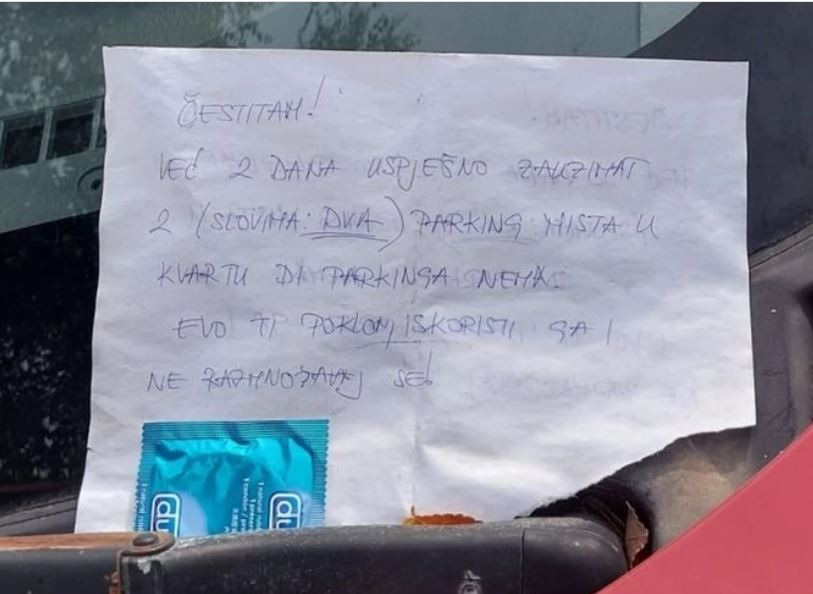 ČESTITAM!
VEĆ 2 DANA USPJEŠNO ZAUZIMAT
2 (SLOVIMA: DVA) PARKING MISTA U
KVARTU DI PARKINGA NEMA.
EVO TI POKLON, ISKORISTI GA I
NE RAZMNOŽAVAJ SE!
du
1 natural rubber
du